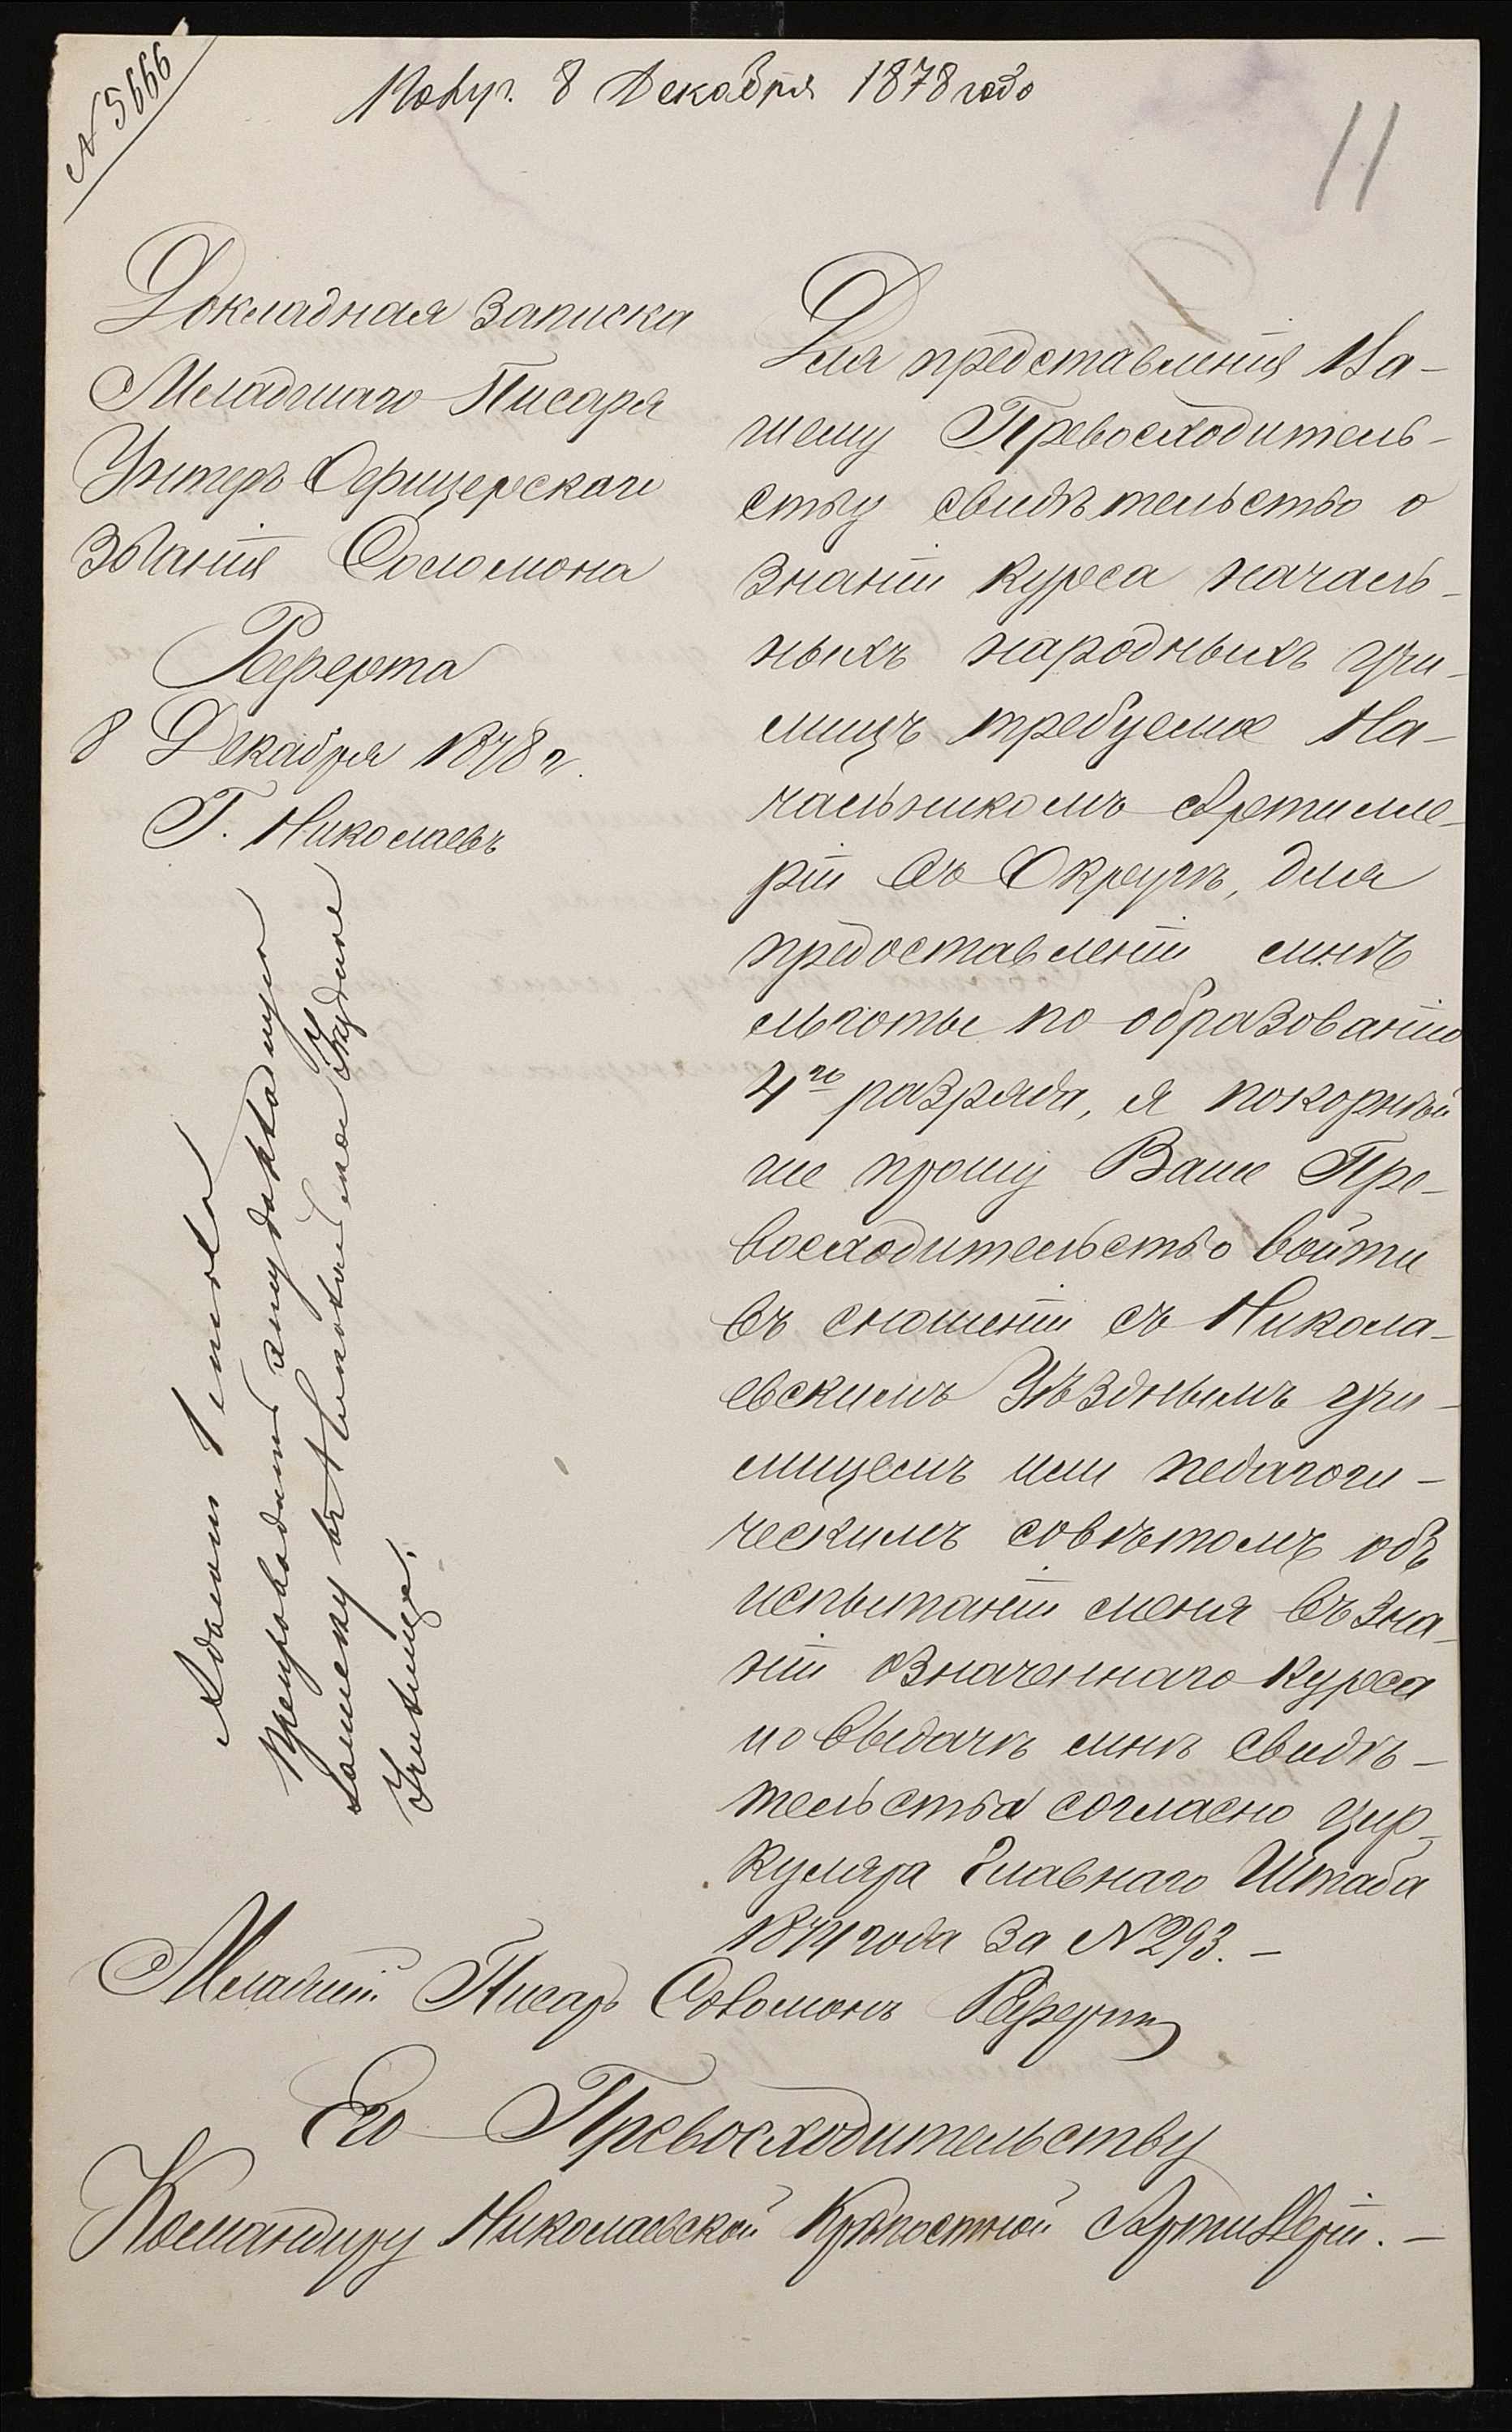 N 5666
Получ. 8 Декабря 1878 года
11
Докладная записка
Младшаго Писаря
Унтеръ Офицерскаго
званія Соломона
Реферта
8 Декабря 1878 г.
Г. Николаевъ
Для представленія Ва-
шему Превосходитель-
ству свидѣтельство о
знаніи курса началь-
ныхъ народныхъ учи-
лищъ требуемое На-
чальникомъ Артилле-
ріи въ Округѣ, для
предоставленія мнѣ
льготы по образованію
4го разряда, я покорнѣй
ше прошу Ваше Пре-
восходительство войти
въ сношеніи съ Никола-
евскимъ Уѣзднымъ учи-
лищемъ или педагоги-
ческимъ совѣтомъ объ
испытаніи меня въ зна-
ніи означеннаго курса
и о выдачѣ мнѣ свидѣ-
тельства согласно цир-
куляра Главнаго Штаба
1874 года за N 293. –
препроводить эту докладную
записку въ Николаевское Уѣздное
Училище.
Младшій Писарь Соломонъ Рефертъ
Его Превосходительству
Командиру Николаевской Крѣпостной Артиллеріи. –